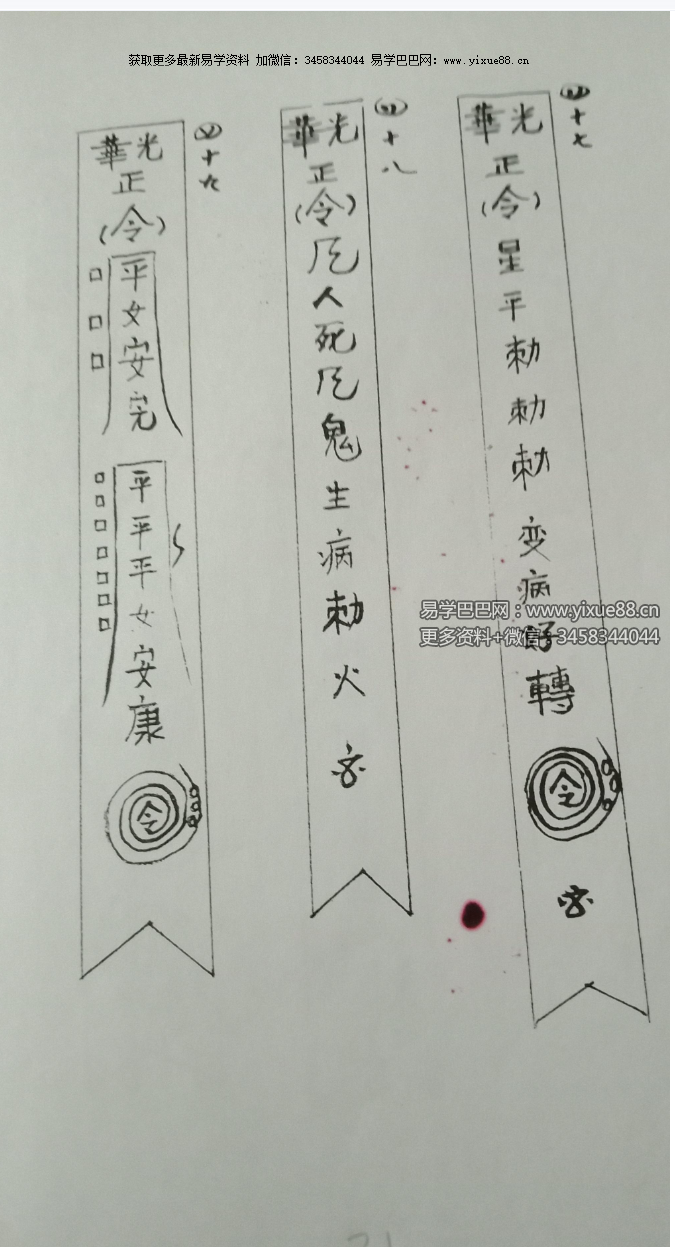 获取更多最新易学资料 加微信：3458344044 易学巴巴网：www.yixue88.cn
四十七
華光
正
(令)
星
平
勅
勅
勅
变
病
好
轉
令
四十八
華光
正
(令)
人
死
鬼
生
病
勅
火
四十九
華光
正
(令)
平
女
安
完
平
平
平
女
安
康
令
易学巴巴网：www.yixue88.cn
更多资料+微信：3458344044
21